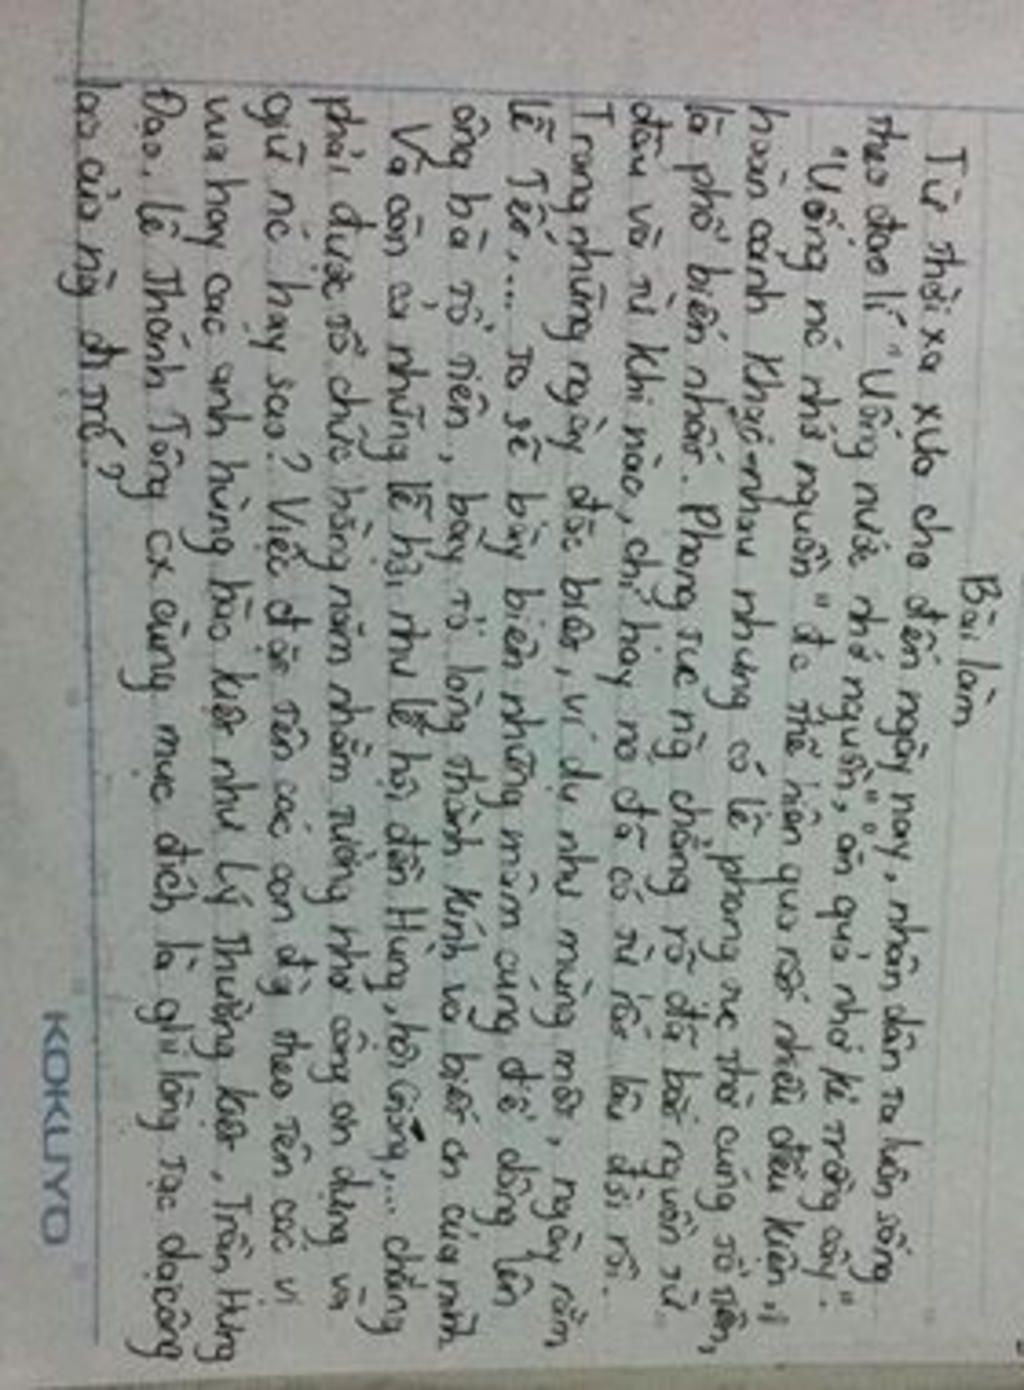 Bài làm
Từ thời xa xưa cho đến ngày nay, nhân dân ta luôn sống
theo đạo lí "Uống nước nhớ nguồn", "ăn quả nhớ kẻ trồng cây".
"Uống nc nhớ nguồn" đc thể hiện qua rất nhiều điều kiện,
hoàn cảnh khác nhau nhưng có lẽ phong tục thờ cúng tổ tiên,
là phổ biến nhất. Phong tục này chẳng rõ đã bắt nguồn từ
đâu và từ khi nào, chỉ hay nó đã có từ rất lâu đời rồi.
Trong những ngày đặc biệt, ví dụ như mùng một, ngày rằm
lễ Tết,... ta sẽ bày biện những mâm cung để dâng lên
ông bà tổ tiên, bày tỏ lòng thành kính và biết ơn của mình
Và còn cả những lễ hội như lễ hội đền Hùng, hội Gióng,... chẳng
phải được tổ chức hằng năm nhằm tưởng nhớ công ơn dựng và
giữ nc hay sao? Việc đặt tên các con đg theo tên các vị
vua hay các anh hùng hào kiệt như Lý Thường Kiệt, Trần Hưng
Đạo, lê Thánh Tông cx cùng mục đích là ghi lòng tạc dạ công
lao của ng đi trc?
KOKUYO